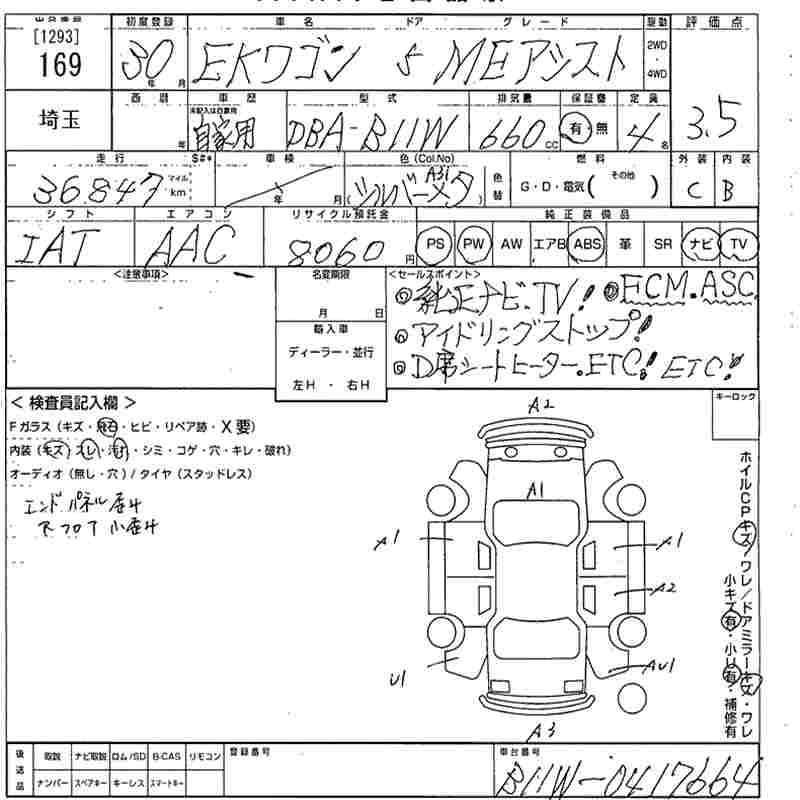 [1293]
169
初度登録
30
年 月
車名 ドア グレード
EKワゴン 5 MEアシスト
駆動
2WD
・
4WD
評価点
3.5
埼玉
西暦
年
車歴
未記入は自家用
自家用
型式
DBA-B11W
排気量
660 CC
保証書
有・無
定員
4 名
走行
36,847
マイル
km
S#*
車検
年 月
色(Col.No)
(シルバーメタ A31)
色替
燃料
G・D・電気( その他 )
外装 内装
C B
シフト
IAT
エアコン
AAC
リサイクル預託金
8060 円
純正装備品
PS PW AW エアB ABS 革 SR ナビ TV
<注意事項>
名変期限
月 日
輸入車
ディーラー・並行
左H ・ 右H
<セールスポイント>
◎純正ナビ.TV! ◎FCM.ASC.
◎アイドリングストップ!
◎D席シートヒーター.ETC! ETC!
< 検査員記入欄 >
Fガラス(キズ・飛石・ヒビ・リペア跡・X要)
内装(キズ・スレ・汚れ・シミ・コゲ・穴・キレ・破れ)
オーディオ(無し・穴)/タイヤ(スタッドレス)
エンドパネル
フロア
キーロック
A2
A1
A1
A1
A2
U1
AU1
A3
ホイルCPキズ/ワレ/ドアミラーキズ・ワレ
小キズ有・小U有・補修有
後送品
取説 ナビ取説 ロム/SD B-CAS リモコン
ナンバー スペアキー キーレス スマートキー
登録番号
車台番号
B11W-0417664